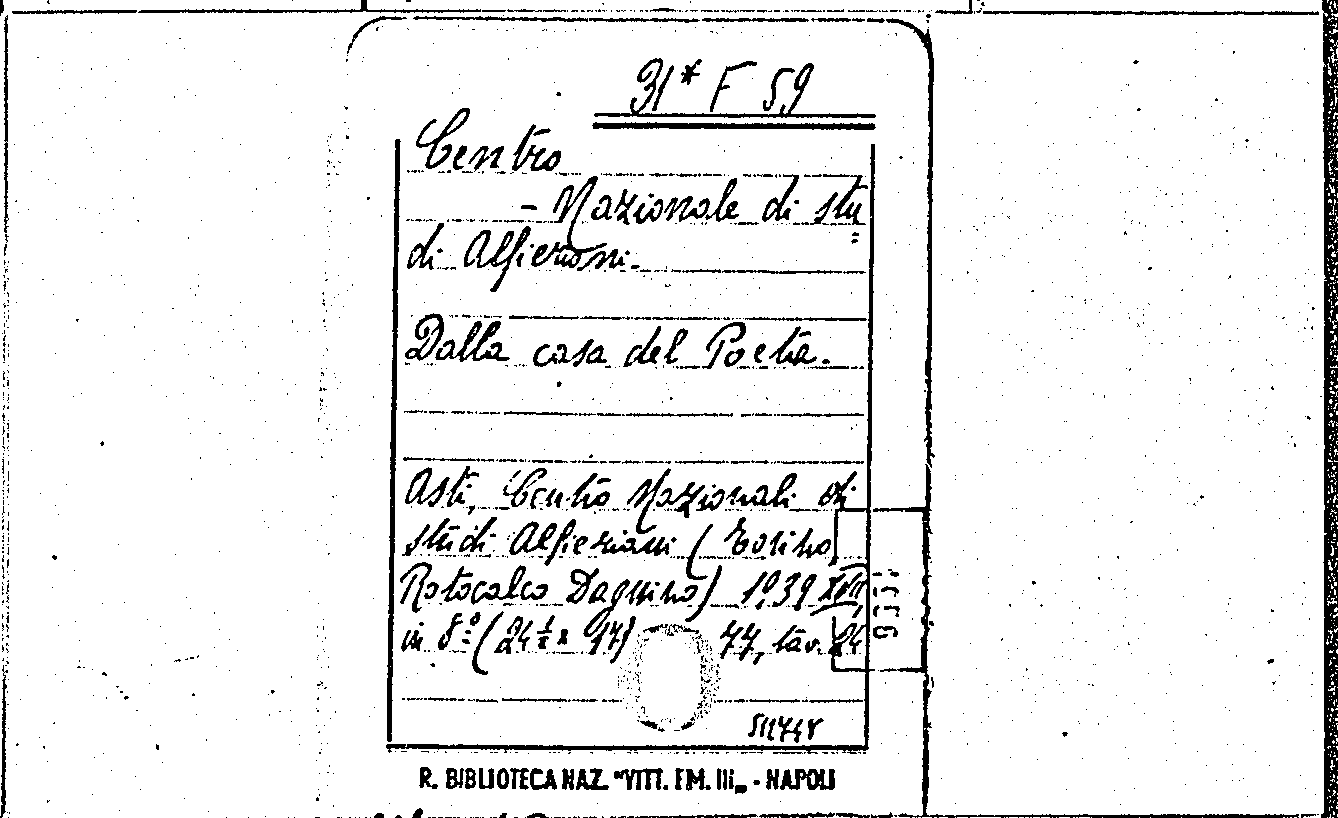 31* F 59
Centro
- Nazionale di stu=
di Alfieriani.
Dalla casa del Poeta.
Asti, Centro Nazionali di
studi Alfieriani (Torino,
Rotocalco Dagnino) 1939 XVII
in 8º (24½ x 17) 77, tav. 24
511748
R. BIBLIOTECA NAZ. "VITT. EM. III„ - NAPOLI